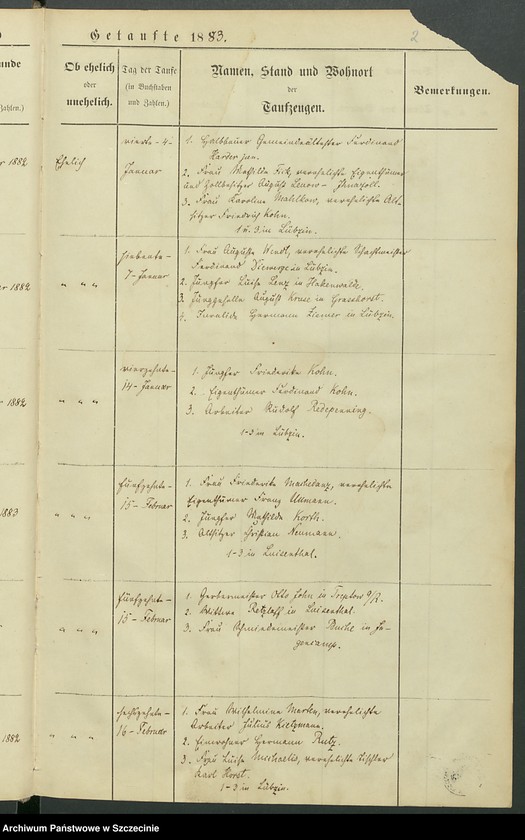 Getaufte 1883.
2
unde
Zahlen.)
Ob ehelich
oder
unehelich.
Tag der Taufe
(in Buchstaben
und Zahlen.)
Namen, Stand und Wohnort
der
Taufzeugen.
Bemerkungen.
1882
Ehelich
vierte - 4 -
Januar
1. Halbbauer Gemeindeältester Ferdinand
Harder jun.
2. Frau Mathilde Fick, verehelichte Eigenthümer
und Zollbesitzer August
3. Frau Karoline Mahlkow, verehelichte Alt-
sitzer Friedrich Kohn.
1 u. 3 in Lübzin.
1882
" " "
siebente -
7 - Januar
1. Frau Auguste Wendt, verehelichte Schachtmeister
Ferdinand in Lübzin.
2. Jungfer Luise Lenz in Hakenwalde.
3. Junggeselle August Kruse in
4. Invalide Hermann Ziemer in Lübzin.
1882
" " "
vierzehnte -
14 - Januar
1. Jungfer Friederike Kohn.
2. Eigenthümer Ferdinand Kohn.
3. Arbeiter Rudolf Redepenning.
1-3 in Lübzin.
1883
" " "
fünfzehnte -
15 - Februar
1. Frau Friederike verehelichte
Eigenthümer Franz Ullmann.
2. Jungfer Mathilde Korth.
3. Altsitzer Christian Neumann.
1-3 in Luisenthal.
" " "
fünfzehnte -
15 - Februar
1. Gerbermeister Otto John in Treptow a/R.
2. Wittwe Retzlaff in Luisenthal.
3. Frau Schmiedemeister in
1882
" " "
sechzehnte -
16 - Februar
1. Frau Wilhelmine verehelichte
Arbeiter Julius Kietzmann.
2. Einwohner Hermann Rutz.
3. Frau Luise Michaelis, verehelichte Tischler
Karl Horst.
1-3 in Lübzin.
Archiwum Państwowe w Szczecinie